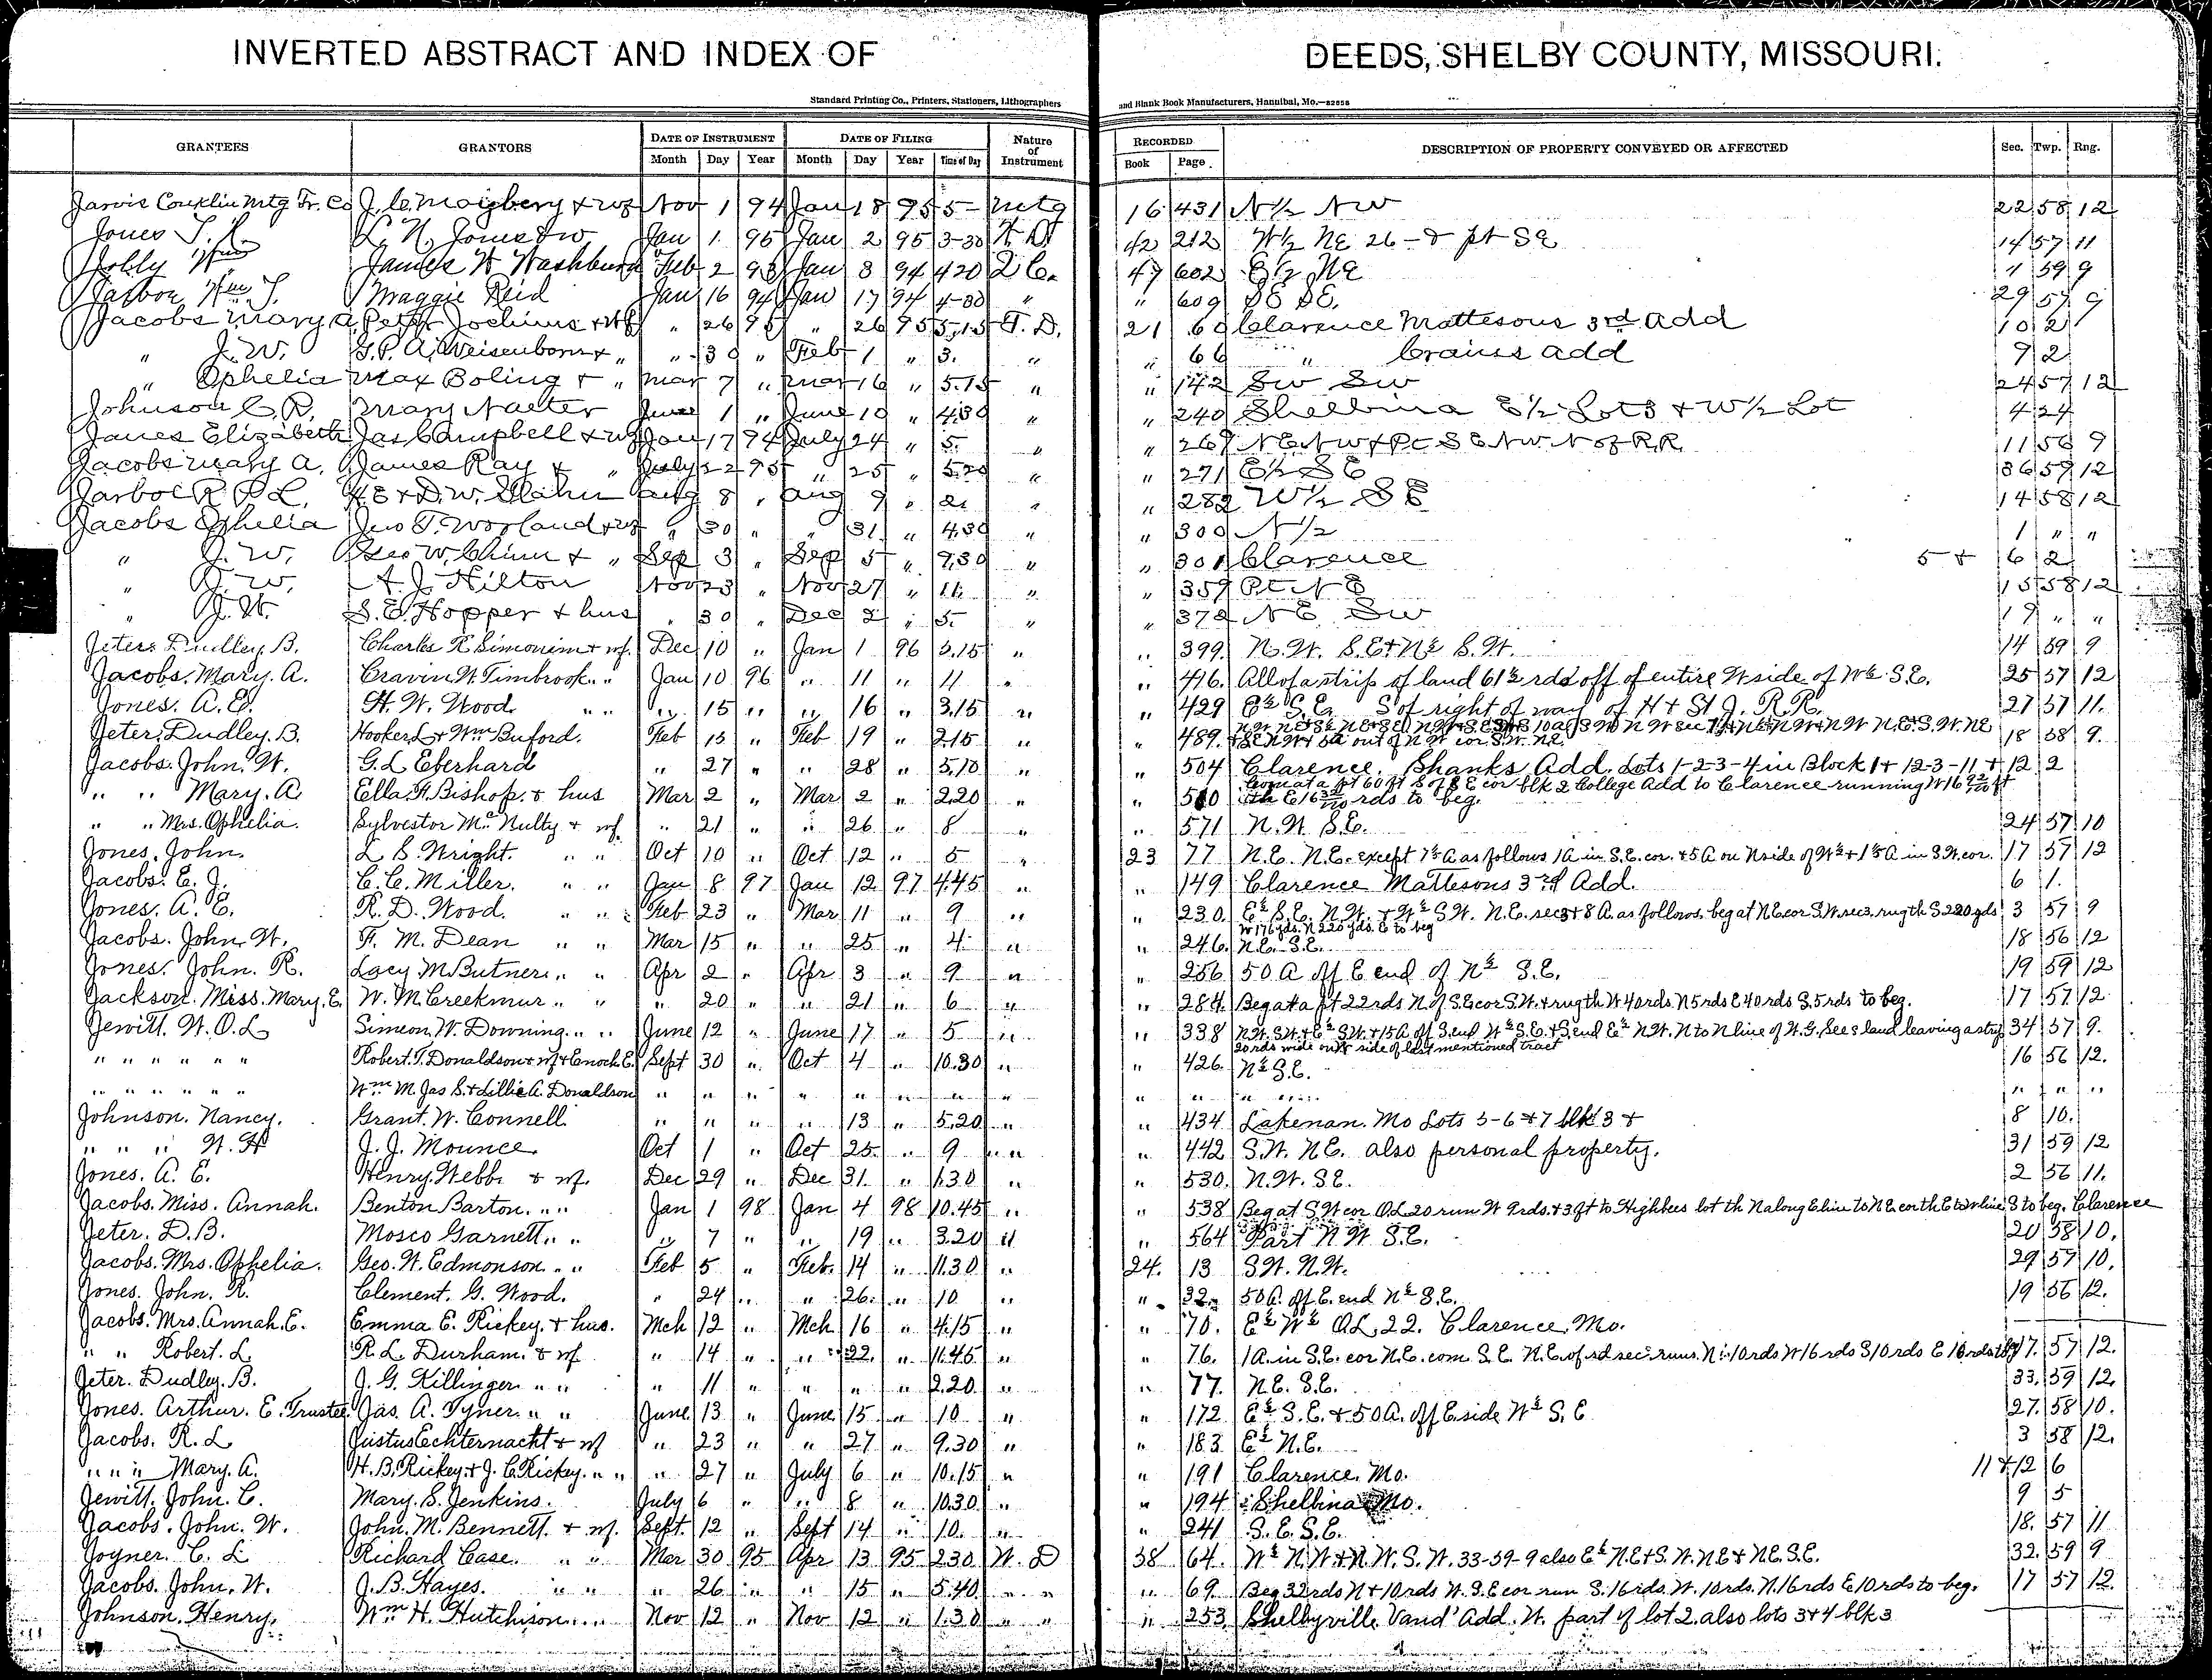 INVERTED ABSTRACT AND INDEX OF DEEDS, SHELBY COUNTY, MISSOURI.
Standard Printing Co., Printers, Stationers, Lithographers and Blank Book Manufacturers, Hannibal, Mo.
GRANTEES GRANTORS DATE OF INSTRUMENT DATE OF FILING Nature of Instrument RECORDED DESCRIPTION OF PROPERTY CONVEYED OR AFFECTED Sec. Twp. Rng.
Month Day Year Month Day Year Time of Day Book Page.
Jarvis Conklin Mtg Tr. Co J. C. & wf Nov 1 94 Jan 18 95 5- Mtg 16 431 N½ NW 22 58 12
Jones L. N. Jones & w Jan 1 95 Jan 2 95 3-30 W D 42 212 W½ NE 26 - & pt SE 14 57 11
Jolly Wm James W Washburn Feb 2 93 Jan 8 94 4 20 Q C. 47 602 E½ NE 59 9
Jarboe Wm T. Maggie Reid Jan 16 94 Jan 17 94 4-30 " " 609 SE SE. 29 57 9
Jacobs Mary A. Jochims & wf " 26 95 " 26 95 5,15 T. D. 21 60 Clarence Mattesons 3rd add 10 2
" J. W. G. P. A. Weisenborn & " " 30 " Feb 1 " 3. " " 66 " add 9 2
" Ophelia Max Boling & " Mar 7 " Mar 16 " 5.15 " " 142 SW SW 24 57 12
Johnson C. R. Mary Nalter June 1 " June 10 " 4.30 " " 240 Shelbina E½ Lots & W½ Lot 4 24
Janes Elizabeth Jas Campbell & wf Jan 17 94 July 24 " 5. " " 267 NE NW & Pt SE NW N of R.R. 11 56 9
Jacobs Mary A. James Ray & " July 22 95 " 25 " 5.20 " " 271 E½ SE 36 59 12
Jarboe R P L. & D. W. Aug 8 " Aug 9 " " " 282 W½ SE 14 58 12
Jacobs Ophelia Jno T. Worland & wf " 30 " " 31 " 4.30 " " 300 N½ 1 " "
" J. W. Geo W. Chinn & " Sep 3 " Sep 5 " 9.30 " " 301 Clarence 5 & 6 2
" J. W. A. J. Hilton Nov 23 " Nov 27 " 11. " " 359 Pt NE 15 58 12
" J. W. S. E. Hopper & hus " 30 " Dec 2 " 5. " " 372 NE SW 19 " "
Jeter. Dudley. B. Charles R Simonim & wf. Dec 10 " Jan 1 96 3.15 " " 399. N.W. S.E & N½ S.W. 14 59 9
Jacobs. Mary. A. Cravin W. Timbrook " " Jan 10 96 " 11 " 11 " " 416. All of a strip of land 61½ rds off of entire W side of W½ S.E. 25 57 12
Jones. A. E. H. W. Wood. " " " 15 " " 16 " 3.15 " " 429 E½ S.E. S of right of way of H & St J. R R. 27 57 11.
Jeter. Dudley. B. Hooker. L & Wm Buford. Feb 15 " Feb 19 " 2.15 " " 489. 18 58 9.
& SE NW & 5A out of N W cor S.W. N.E.
Jacobs. John. W. G. L Eberhard " 27 " " 28 " 5.10 " " 504 Clarence. Shanks Add. Lots 1-2-3-4 in Block 1 & 12-3-11 & 12 2
" " Mary. A. Ella. F. Bishop. & hus Mar 2 " Mar 2 " 2.20 " " 510 Com at a pt 60 ft S of S E cor blk 2 College Add to Clarence running W 16
rds to beg.
" " Mrs. Ophelia. Sylvestor Mc Nulty & wf. " 21 " " 26 " 8 " " 571 N. W. S.E. 24 57 10
Jones. John. L S. Wright. " " Oct 10 " Oct 12 " 5 " 23 77 N.E. N.E. except 7½ A as follows 1A in S.E. cor. & 5 A on N side of W½ & 1½ A in S.W. cor. 17 57 12
Jacobs. E. J. C. C. Miller. " " Jan 8 97 Jan 12 97 4.45 " " 149 Clarence Mattesons 3rd Add. 6 1.
Jones. A. E. R. D. Wood. " " Feb 23 " Mar 11 " 9 " " 230. E½ S.E. N.W. & W½ S.W. N.E. sec 3 & 8 A. as follows. beg at N.E. cor S.W. sec 3. rug th S 220 yds 3 57 9
W 176 yds. N 220 yds. E to beg
Jacobs. John. W. F. M. Dean " " Mar 15 " " 25 " 4 " " 246. N.E. S.E. 18 56 12
Jones. John. R. Lacy M Butner " " Apr 2 " Apr 3 " 9 " " 256 50 A off E end of N½ S.E. 19 59 12
Jackson. Miss. Mary. E. W. M. Creekmur " " " 20 " " 21 " 6 " " 284. Beg at a pt 22 rds N. of S.E cor S.W. & rug th W 40 rds. N 5 rds E 40 rds S. 5 rds to beg. 17 57 12
Jewitt. W. O. L Simeon. W. Downing " " June 12 " June 17 " 5 " " 338 N.W. S.W. & E½ S.W. & 15 A. off S. end W½ S.E. & S. end E½ N.W. N to N line of W. G. See s land leaving a strip 34 57 9.
20 rds wide on side of last mentioned tract
" " " " " Robert. T. Donaldson & wf & Enoch E. Sept 30 " Oct 4 " 10.30 " " 426. N½ S.E. 16 56 12.
" " " " " Wm M. Jas S. & Lillie A. Donaldson " " " " " " " " " " " " " "
Johnson. Nancy. Grant. W. Connell " " " " 13 " 5.20 " " 434 Lakenan. Mo Lots 5-6 & 7 blk 3 & 8 10.
" " " W. H J. J. Mounce. Oct 1 " Oct 25. " 9 " " " 442 S.W. N.E. also personal property. 31 59 12
Jones. A. E. Henry. Webb. & wf. Dec 29 " Dec 31. " 1.30 " " 530. N.W. S.E. 2 56 11.
Jacobs. Miss. Annah. Benton Barton. " " Jan 1 98 Jan 4 98 10.45 " " 538 Beg at S.W cor O.L 20 run W 9 rds. & 3 ft to Highbees lot th N along E line to N E cor th E to W line S to beg. Clarence
Jeter. D. B. Mosco Garnett. " " " 7 " " 19 " 3.20 " " 564 Part N W S.E. 20 58 10.
Jacobs. Mrs. Ophelia. Geo. W. Edmonson. " " Feb 5 " Feb. 14 " 11.30 " 24. 13 S.W. N.W. 29 57 10.
Jones. John. R. Clement. G. Wood. " 24 " " 26. " 10 " " 32. 50 A. off E. end N½ S.E. 19 56 12.
Jacobs. Mrs. Annah. E. Emma E. Rickey. & hus. Mch 12 " Mch 16 " 4.15 " " 70. E½ W½ O.L, 22. Clarence, Mo.
" " Robert. L. R. L. Durham. & wf " 14 " " 22. " 11.45 " " 76. 1 A. in S.E. cor N.E. com. S.E. N.E. of sd sec. runs. N 10 rds W 16 rds S 10 rds E 16 rds to beg 17. 57 12.
Jeter. Dudley. B. J. G. Killinger " " " 11 " " " " 2.20. " " 77. N.E. S.E. 33. 59 12.
Jones. Arthur. E. Trustee. Jas. A. Tyner. " " June 13 " June 15 " 10 " " 172 E½ S.E. & 50 A. off E side W½ S. E 27. 58 10.
Jacobs. R. L Justus Echternacht & wf " 23 " " 27 " 9.30 " " 183. E½ N.E. 3 58 12.
" " " Mary. A. H. B. Rickey. & J. C. Rickey. " " " 27 " July 6 " 10.15 " " 191 Clarence. Mo. 11 & 12 6
Jewitt. John. C. Mary. S. Jenkins. July 6 " " 8 " 10.30. " " 194 Shelbina Mo. 9 5
Jacobs. John. W. John. M. Bennett. & wf. Sept. 12 " Sept 14 " 10. " " 241 S. E. S.E. 18. 57 11
Joyner. C. L Richard Case. " " Mar 30 95 Apr 13 95 2.30 W. D 38 64. W½ N.W & N.W. S.W. 33-59-9 also E½ N.E & S.W. N.E & N.E. S.E. 32. 59 9
Jacobs. John. W. J. B. Hayes. " " " 26 " " 15 " 5.40 " " " 69. Beg 32 rds N & 10 rds W. S.E cor run S. 16 rds. W. 10 rds. N. 16 rds E 10 rds to beg. 17 57 12.
Johnson. Henry. Wm H. Hutchison " " Nov 12 " Nov 12 " 1.30 " " " 253 Shelbyville Vand' Add. W. part of lot 2. also lots 3 & 4 blk 3